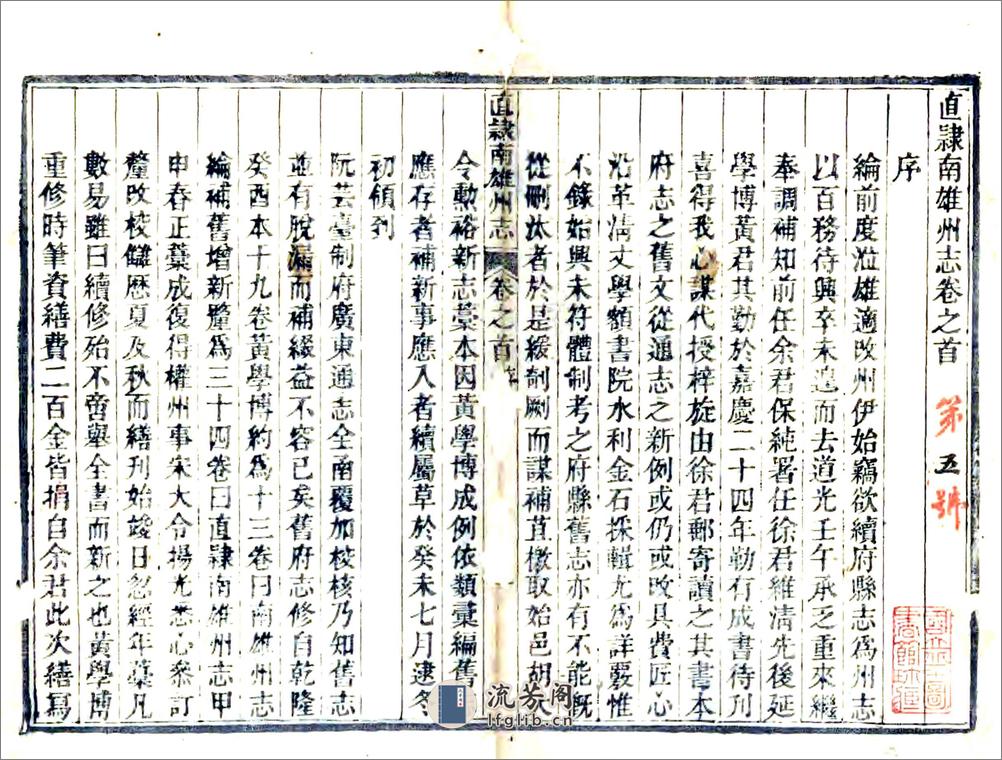 直隸南雄州志卷之首
第五號
序
綸前度涖雄適改州伊始竊欲續府縣志爲州志
以百務待興卒未遑而去道光壬午承乏重來繼
奉調補知前任余君保純署任徐君維清先後延
學博黃君其勤於嘉慶二十四年勒有成書待刋
喜得我心謀代授梓旋由徐君郵寄讀之其書本
府志之舊文從通志之新例或仍或改具費匠心
沿革清文學額書院水利金石採輯尤爲詳覈惟
不錄始興未符體制考之府縣舊志亦有不能旣
從刪汰者於是緩剞劂而謀補苴檄取始邑胡大
直隸南雄州志 卷之首 序
令勲裕新志藁本因黃學博成例依類彙編舊
應存者補新事應入者續屬草於癸未七月逮冬
初領到
阮芸臺制府廣東通志全函覆加校核乃知舊志
並有脫漏而補綴益不容已矣舊府志修自乾隆
癸酉本十九卷黃學博約爲十三卷曰南雄州志
綸補舊增新釐爲三十四卷曰直隸南雄州志甲
申春正藁成復得權州事宋大令揚光悉心叅訂
釐改校讎歷夏及秋而繕刋始竣日忽經年藁凡
數易雖曰續修殆不啻舉全書而新之也黃學博
重修時筆資繕費二百金皆捐自余君此次繕寫
流芳阁
lfglib.cn